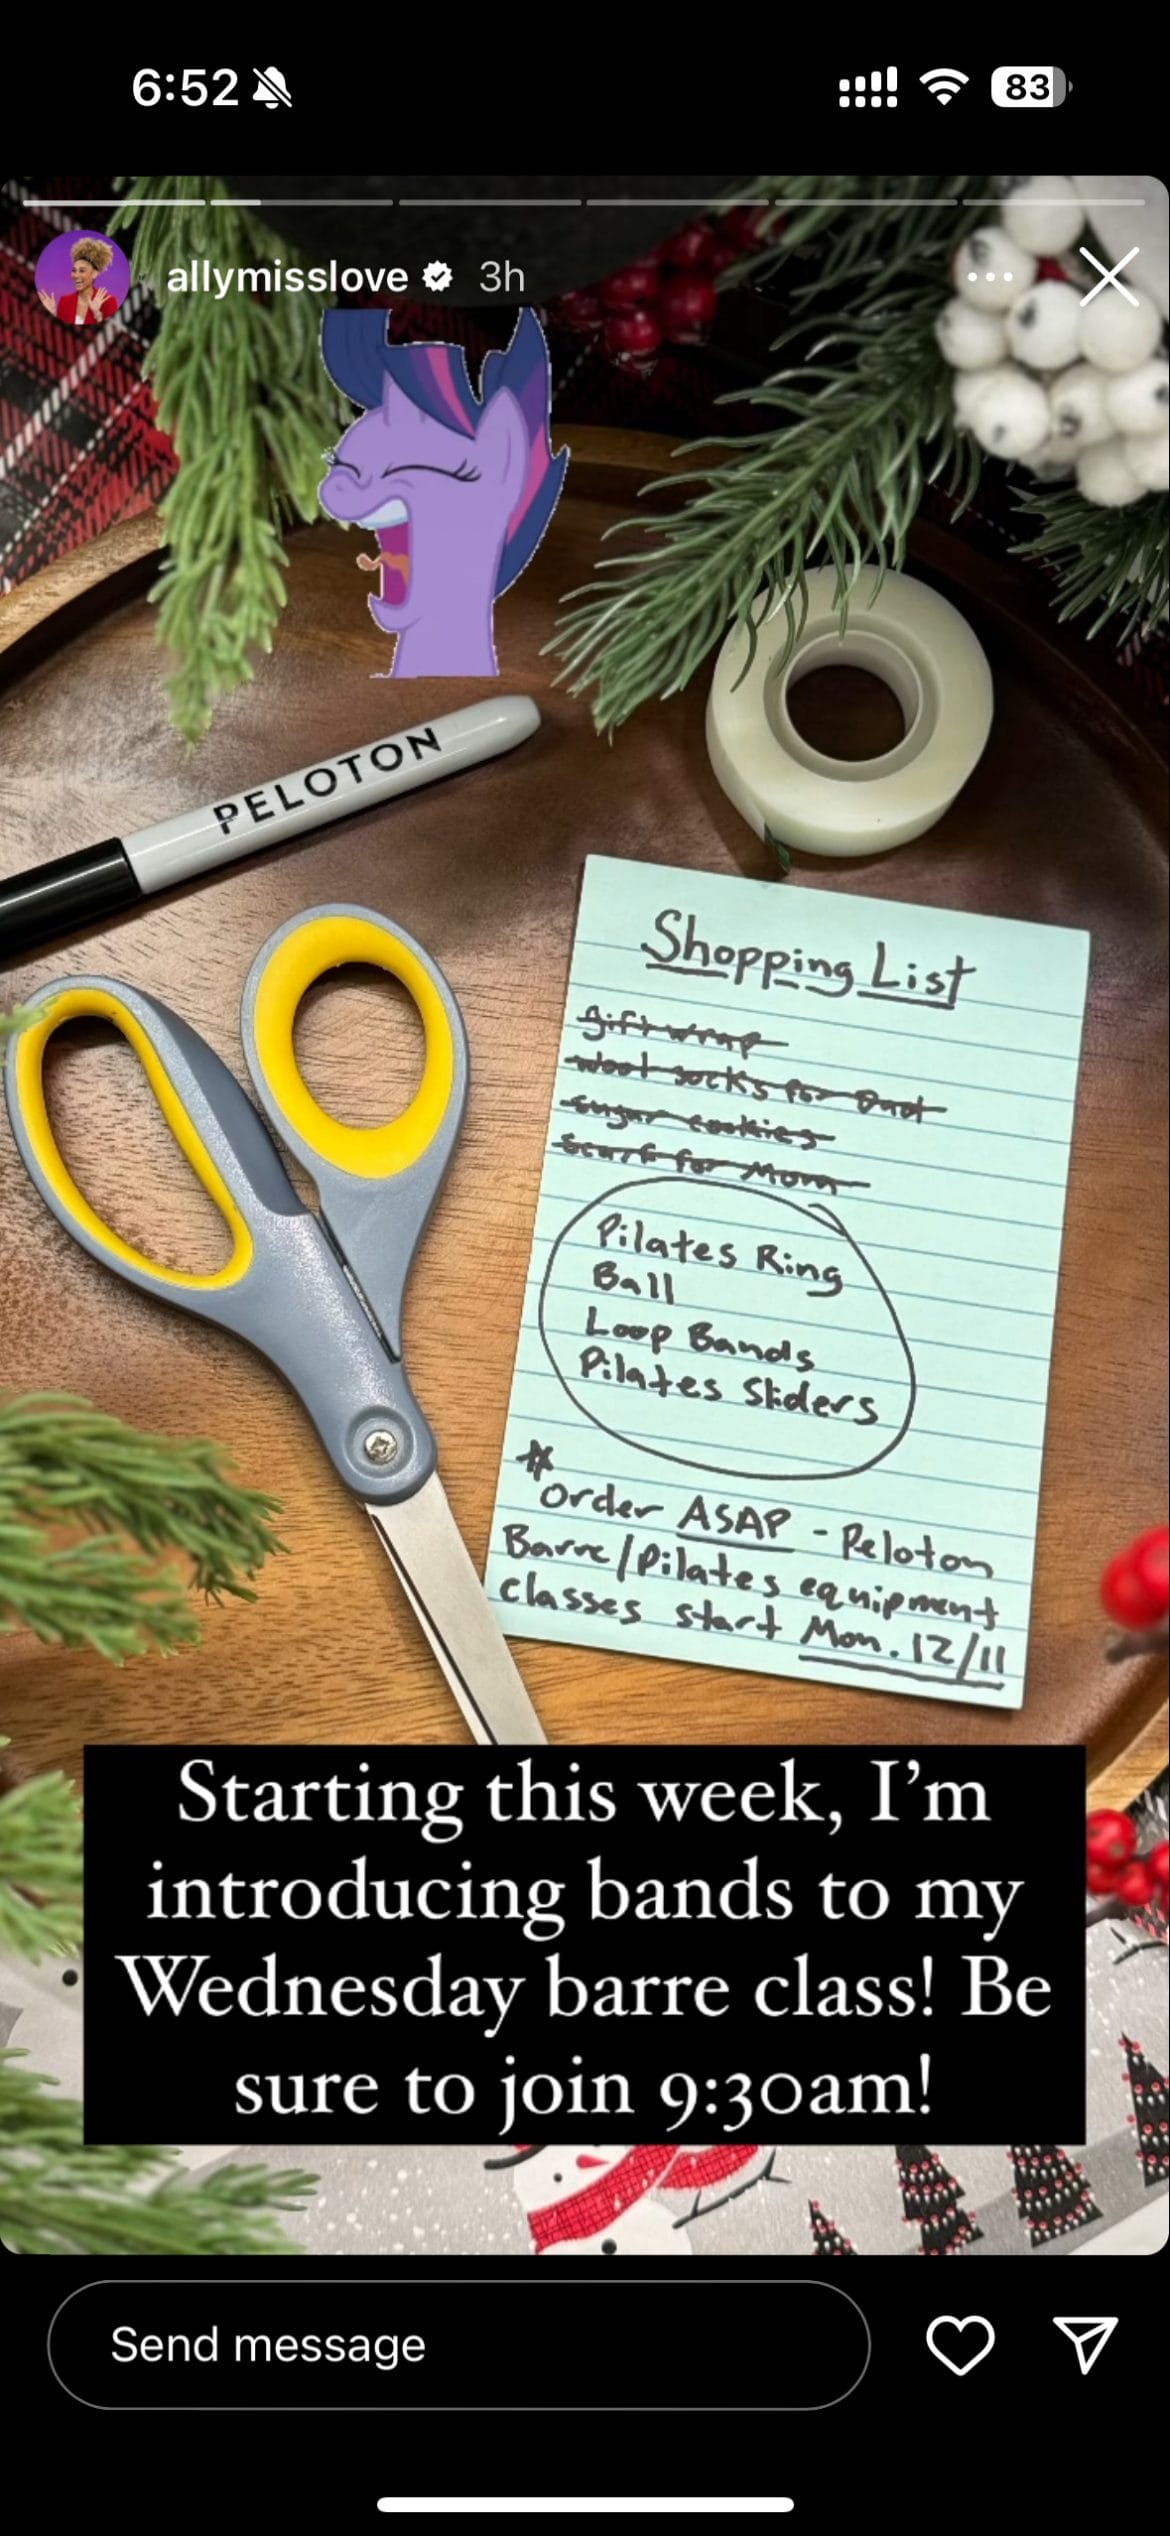 6:52
83
allymisslove 3h
PELOTON
Shopping List
gift wrap
wool socks for Dad
sugar cookies
scarf for Mom
Pilates Ring
Ball
Loop Bands
Pilates Sliders
*
Order ASAP - Peloton
Barre/Pilates equipment
classes start Mon. 12/11
Starting this week, I’m
introducing bands to my
Wednesday barre class! Be
sure to join 9:30am!
Send message